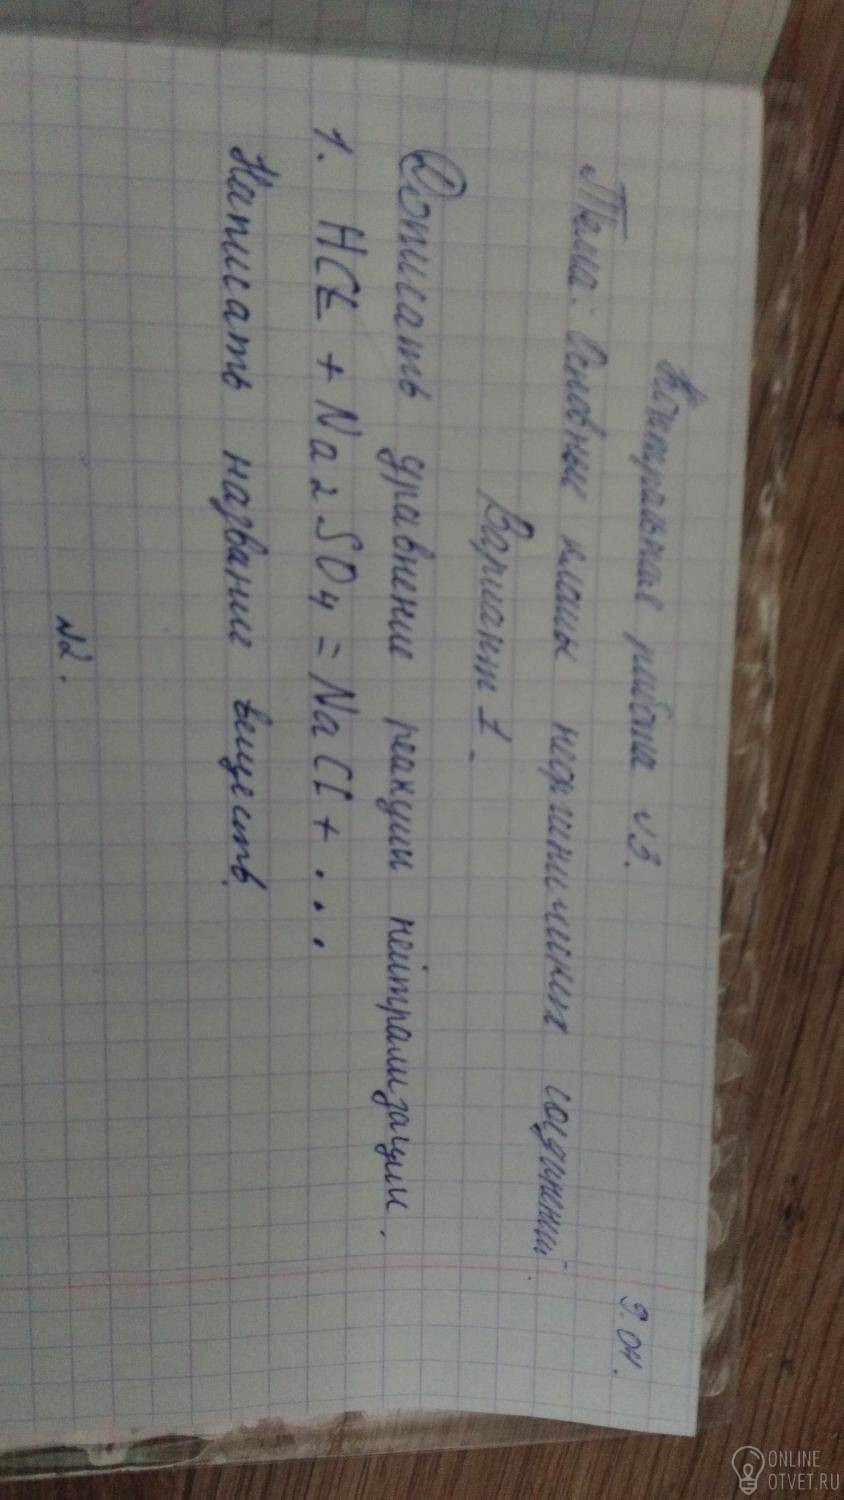 9.04.
Контрольная работа №3.
Тема: Основные классы неорганических соединений.
Вариант 1.
Дописать уравнение реакции нейтрализации.
1. HCl + Na2SO4 = NaCl + ...
Написать название веществ.
№2.
ONLINE
OTVET.RU